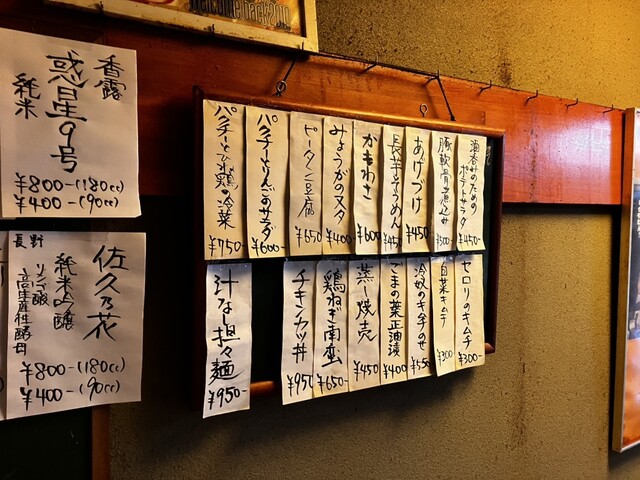 Welcome back 200
香露
惑星9号
純米
¥800-(180cc)
¥400-(90cc)
長野
佐久乃花
純米吟醸
リンゴ酸
高生産性酵母
¥800-(180cc)
¥400-(90cc)
酒呑みのための
ポテトサラダ
¥450-
豚軟骨の煮込み
¥500-
あげづけ
¥450
長芋そうめん
¥450
かもわさ
¥600
みょうがのヌタ
¥400
ピータン豆腐
¥650
パクチーとりんごのサラダ
¥600-
パクチーとひね鶏の冷菜
¥750-
セロリのキムチ
¥300-
白菜キムチ
¥300
冷奴のキムチのせ
¥550
ごまの葉正油漬
¥400
蒸し焼売
¥450
鶏ねぎ南蛮
¥650-
チキンカツ丼
¥950
汁なし担々麺
¥950-